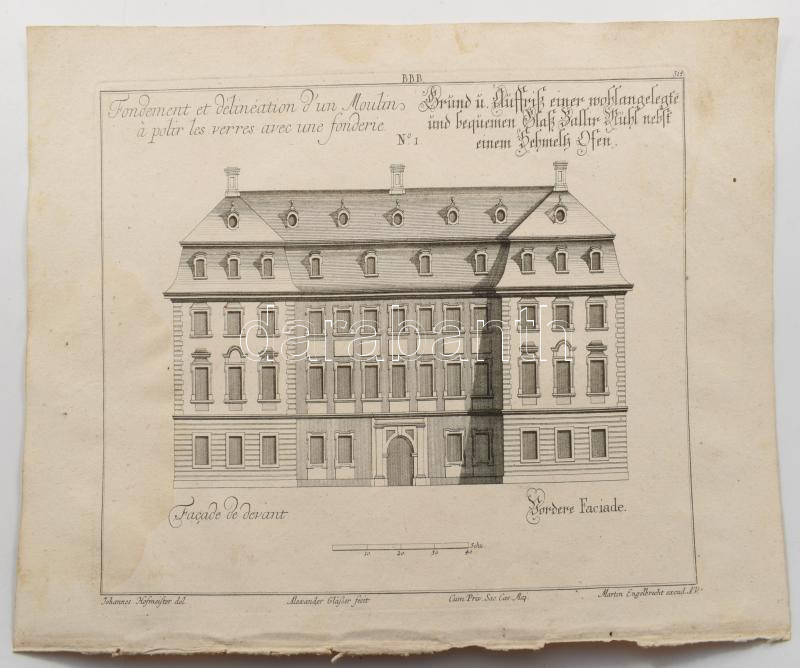 B.B.B.
314.
Fondement et délinéation d'un Moulin
à polir les verres avec une fonderie.
Grund u. Auffriß einer wohlangelegte
und bequemen Glaß Ballir Mühl nebst
einem Schmeltz Ofen.
N.º 1.
darabanth
Façade de devant
Vordere Faciade.
10. 20. 30. 40. Schu.
Johannes Hofmeister del.
Alexander Gläßer fecit
Cum Priv. Sac. Cæs. Maj.
Martin Engelbrecht excud. A.V.